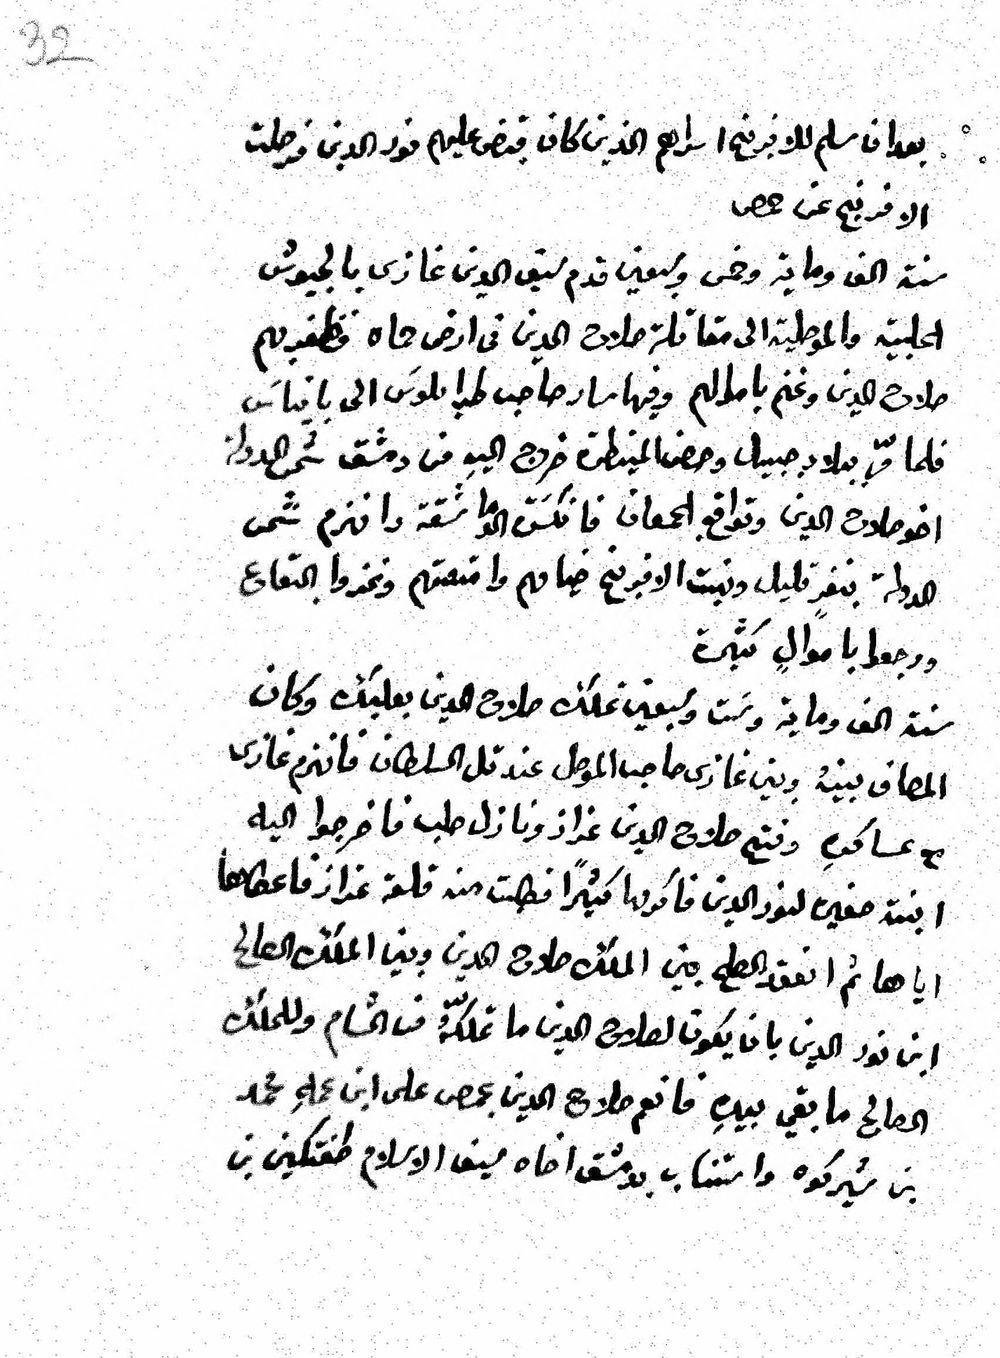 32
بعد ان سلم للافرنج اسراهم الذين كان قبض عليهم نور الدين فرحلت
الافرنج عن حمص
سنة الف وماية وخمس وسبعين قدم سيف الدين غازى بالجيوش
الحلبية والموصلية الى مقاتلة صلاح الدين فى ارض حماه فظفر بهم
صلاح الدين وغنم باموالهم وفيها سار صاحب طرابلوس الى بانياس
فلما مرّ ببلاد جبيل وحصن المنيطرة خرج اليهِ من دمشق شمس الدولة
اخو صلاح الدين وتواقع الجمعان فانكسَرت الدماشقة وانهزم شمس
الدولة بنفرٍ قليل ونهبت الافرنج خيامهم وامتعتهم وغزوا البقاع
ورجعوا باموالٍ كثيرة
سنة الف وماية وست وسبعين تملك صلاح الدين بعلبك وكان
المصاف بينهُ وبين غازى صاحب الموصل عند تل السلطان فانهزم غازى
مع عساكرهِ وفتح صلاح الدين عزاز ونازل حلب فاخرجوا اليه
ابنة صغيره لنور الدين فاكرمها كثيرًا فطلبت منه قلعة عزاز فاعطاها
اياها ثم انعقد الصلح بين الملك صلاح الدين وبين الملك الصالح
ابن نور الدين بان يكون لصلاح الدين ما تملكهُ من الشام وللملك
الصالح ما بقي بيدهِ فانعم صلاح الدين بحمص على ابن عمهِ محمد
بن شيركوه واستناب بدمشق اخاه سيف الاسلام طغتكين بن